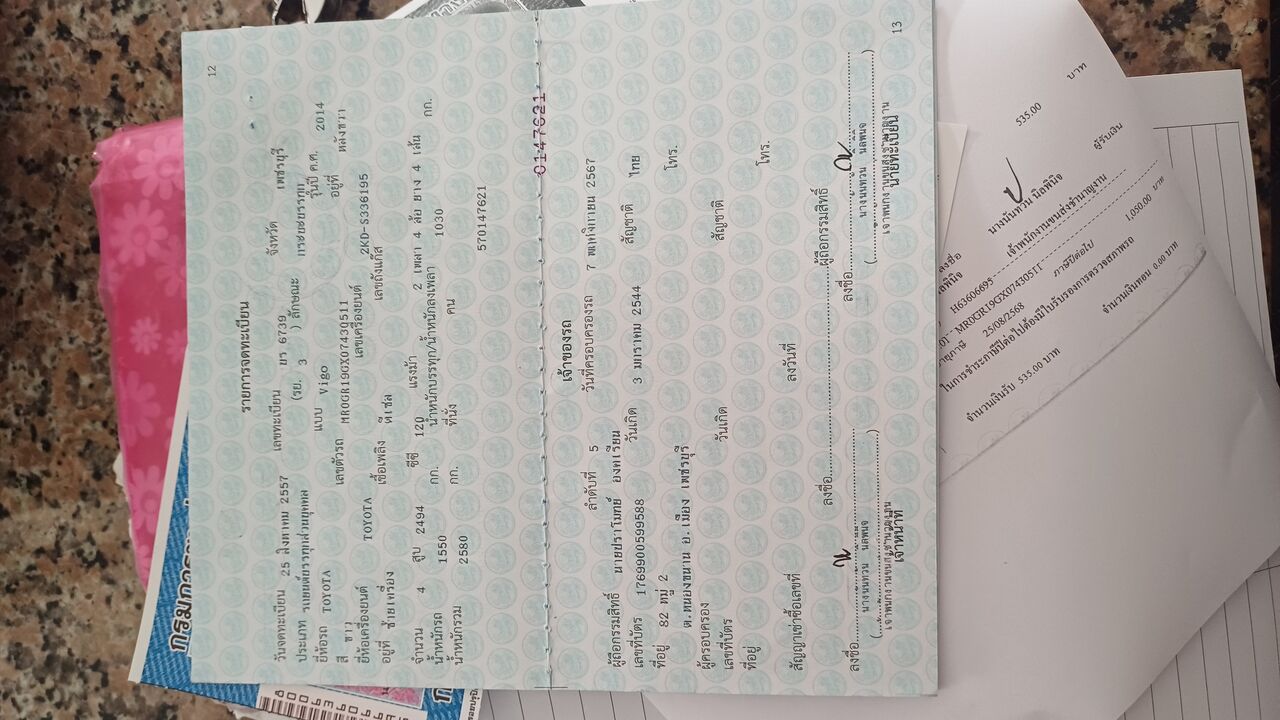 12
รายการจดทะเบียน
วันจดทะเบียน 25 สิงหาคม 2557 เลขทะเบียน ยร 6739 จังหวัด เพชรบุรี
ประเภท รถยนต์บรรทุกส่วนบุคคล (รย. 3 ) ลักษณะ กระบะบรรทุก
ยี่ห้อรถ TOYOTA แบบ Vigo รุ่นปี ค.ศ. 2014
สี ขาว เลขตัวรถ อยู่ที่ หลังขวา
ยี่ห้อเครื่องยนต์ TOYOTA เลขเครื่องยนต์ 2KD-S336195
อยู่ที่ ซ้ายเครื่อง เชื้อเพลิง ดีเซล เลขถังแก๊ส
จำนวน 4 สูบ 2494 ซีซี 120 แรงม้า 2 เพลา 4 ล้อ ยาง 4 เส้น
น้ำหนักรถ 1550 กก. น้ำหนักบรรทุก/น้ำหนักลงเพลา 1030 กก.
น้ำหนักรวม 2580 กก. ที่นั่ง คน
570147621
0147621
เจ้าของรถ
ลำดับที่ 5 วันที่ครอบครองรถ 7 พฤศจิกายน 2567
ผู้ถือกรรมสิทธิ์ นายปราโมทย์ องคเรียน
เลขที่บัตร 1769900599588 วันเกิด 3 มกราคม 2544 สัญชาติ ไทย
ที่อยู่ 82 หมู่ 2 โทร.
ต.หนองขนาน อ.เมือง เพชรบุรี
ผู้ครอบครอง
เลขที่บัตร วันเกิด สัญชาติ
ที่อยู่ โทร.
สัญญาเช่าซื้อเลขที่ ลงวันที่
ลงชื่อ ผู้ถือกรรมสิทธิ์
ลงชื่อ ลงชื่อ
เจ้าหน้าที่ นายทะเบียน
13
ลงชื่อ
นางนันทวน นิลพินิจ
เจ้าพนักงานขนส่งชำนาญงาน
ผู้รับเงิน
535.00 บาท
H63606695
25/08/2568 ภาษีปีต่อไป 1,050.00 บาท
ในการชำระภาษีปีต่อไปต้องมีใบรับรองการตรวจสภาพรถ
จำนวนเงินนับ 535.00 บาท จำนวนเงินทอน 0.00 บาท